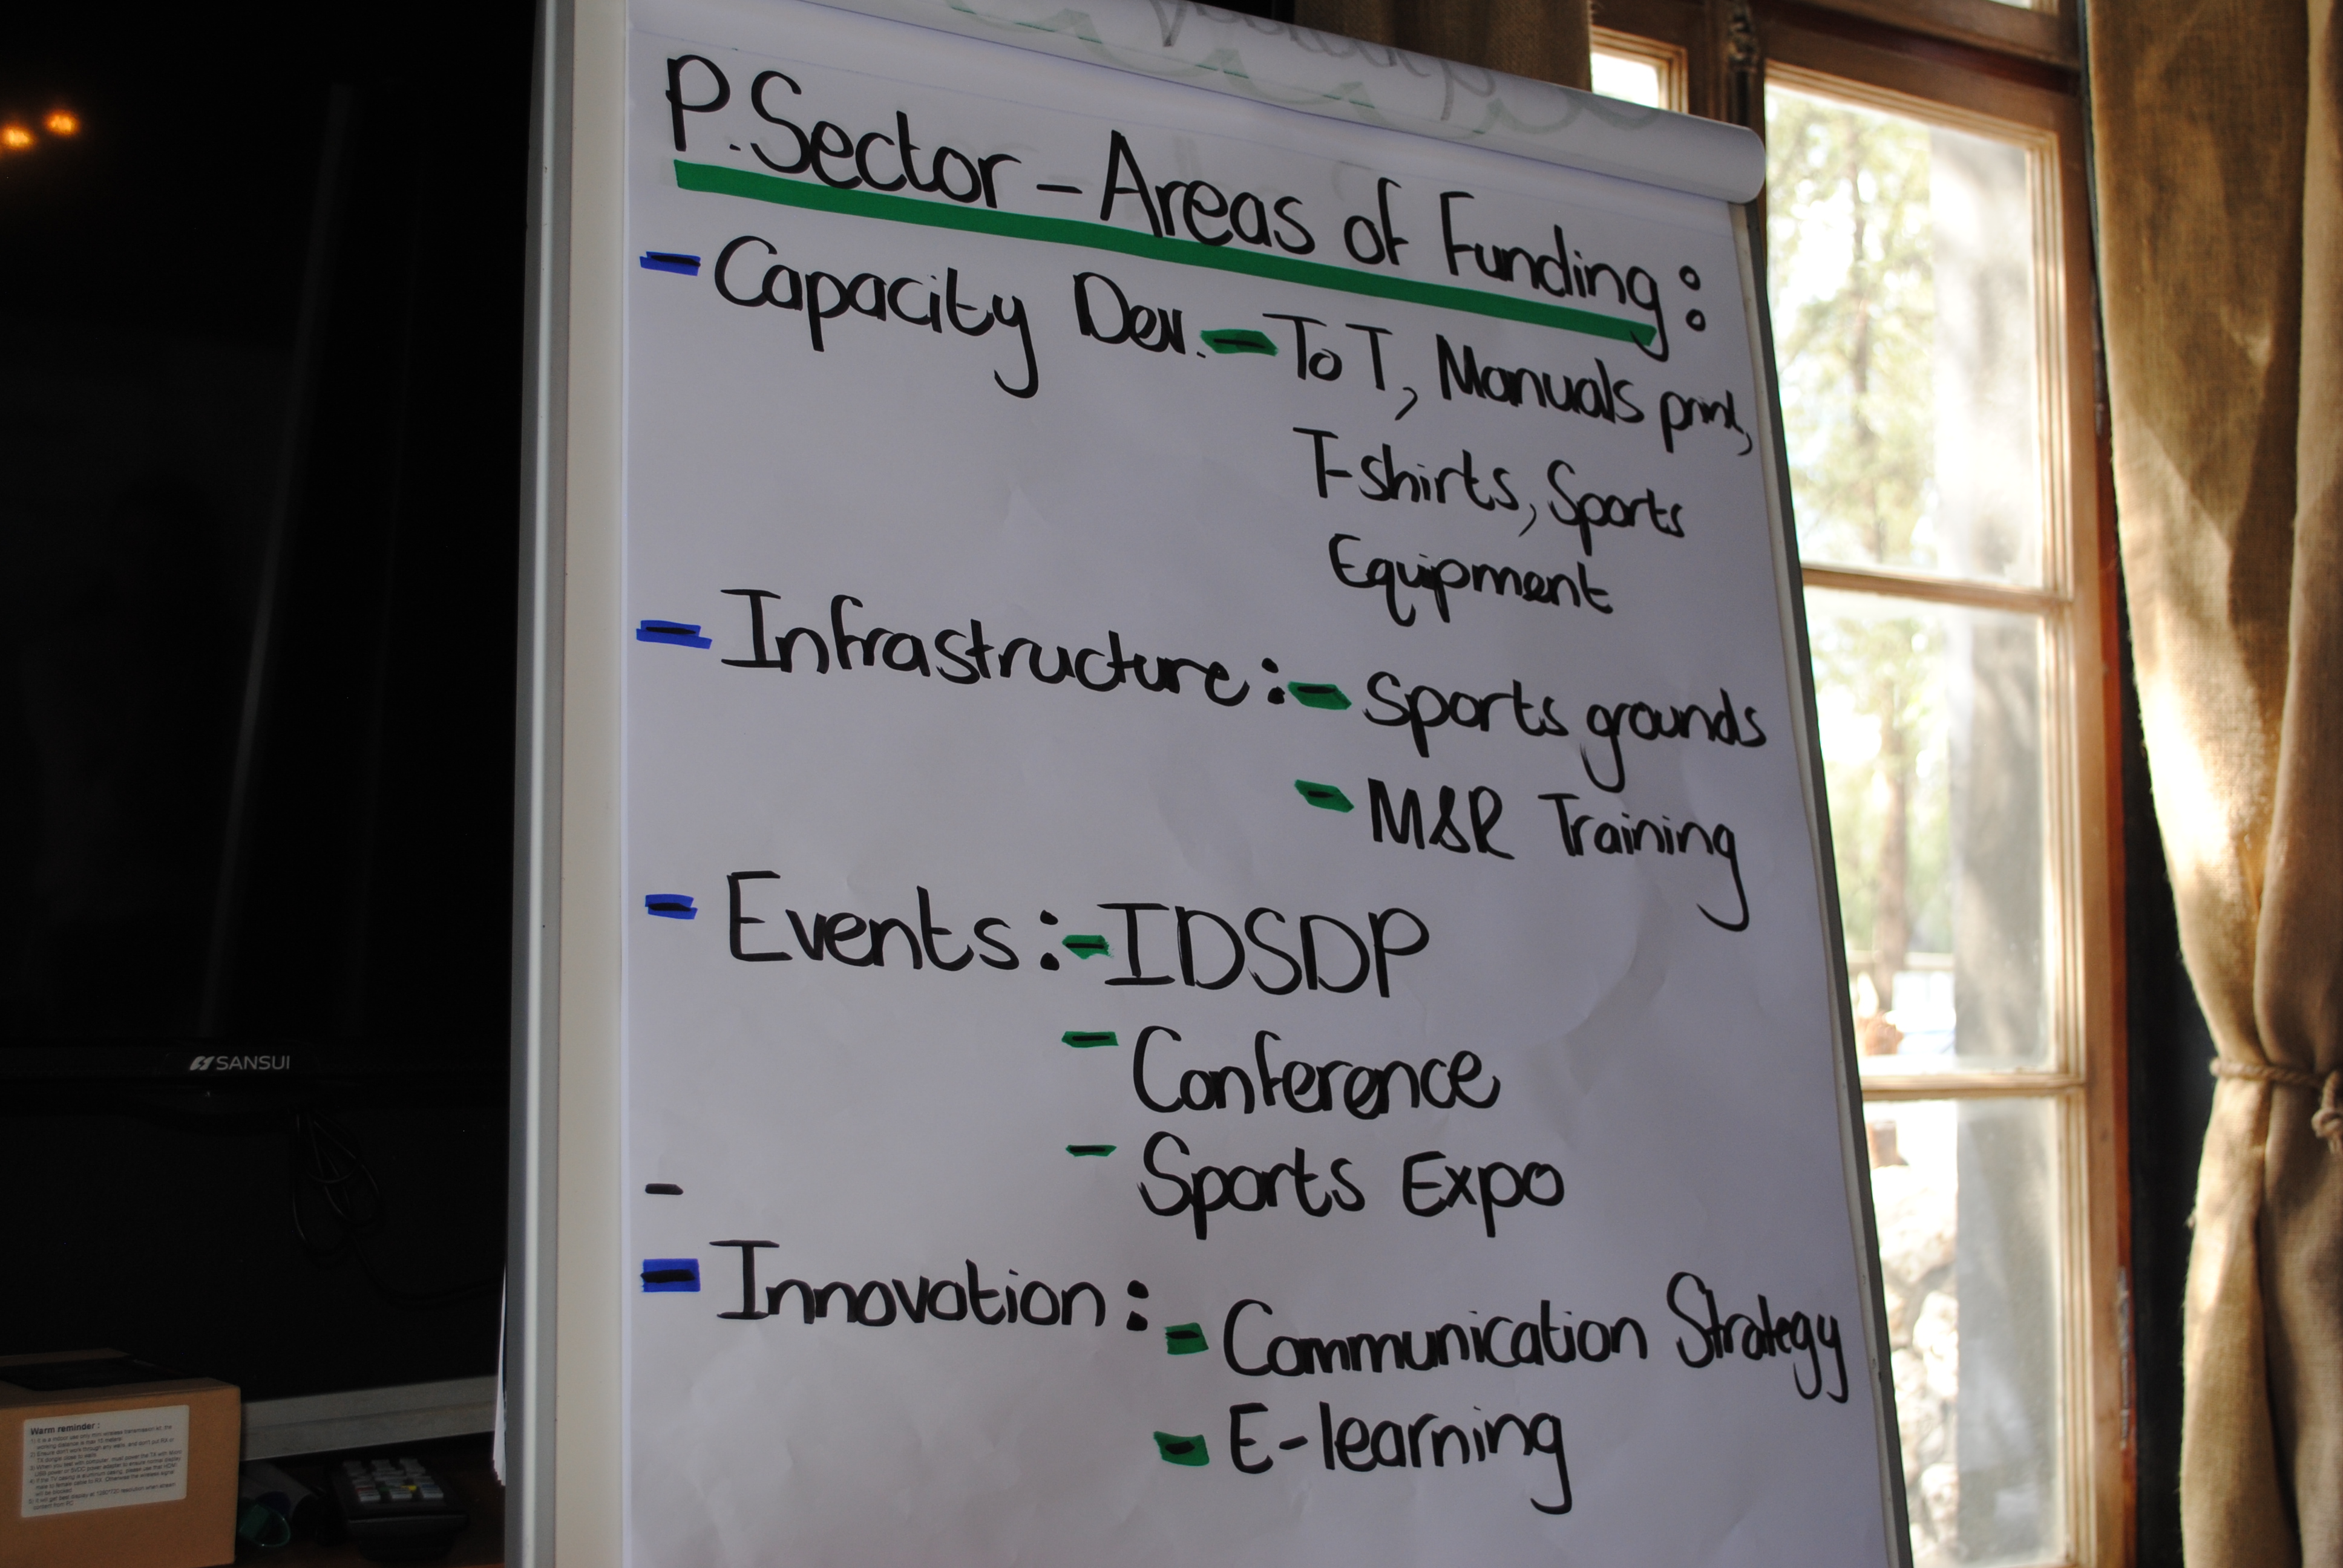 P. Sector - Areas of Funding:
- Capacity Dev. - ToT, Manuals print,
T-shirts, Sports
Equipment
- Infrastructure: - Sports grounds
- M&R Training
- Events: - IDSDP
- Conference
- Sports Expo
-
- Innovation: - Communication Strategy
- E-learning
SANSUI
Warm reminder: